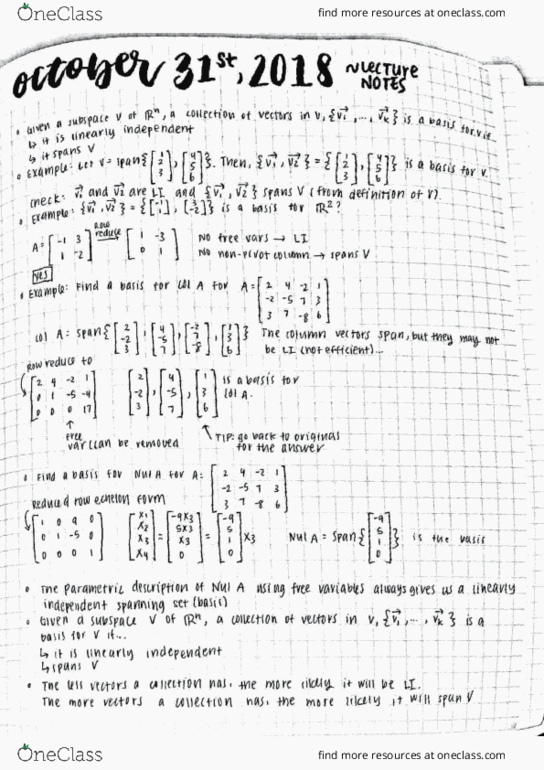 OneClass find more resources at oneclass.com
october 31st, 2018 ~LECTURE NOTES
• Given a subspace V of ℝⁿ, a collection of vectors in V, {v₁, ..., vₖ} is a basis for V if
↳ it is linearly independent
↳ it spans V
• Example: Let V = span{[1 2 3], [4 5 6]}. Then, {v₁, v₂} = {[1 2 3], [4 5 6]} is a basis for V.
check: v₁ and v₂ are LI and {v₁, v₂} spans V (from definition of V).
• Example: {v₁, v₂} = {[-1 1], [3 -2]} is a basis for ℝ²?
A = [-1 3; 1 -2] row reduce → [1 -3; 0 1] No free vars → LI
No non-pivot column → spans V
yes
• Example: Find a basis for Col A for A = [2 4 -2 1; -2 -5 7 3; 3 7 -8 6]
Col A: span{[2 -2 3], [4 -5 7], [-2 7 -8], [1 3 6]} The column vectors span, but they may not
be LI (not efficient)...
Row reduce to
[2 4 -2 1; 0 1 -5 -4; 0 0 0 17] [2 -2 3], [4 -5 7], [1 3 6] is a basis for
Col A.
↑ free var (can be removed
↑ TIP: go back to originals for the answer
• Find a basis for Nul A for A: [2 4 -2 1; -2 -5 7 3; 3 7 -8 6]
Reduced row echelon form
[1 0 9 0; 0 1 -5 0; 0 0 0 1] [x₁ x₂ x₃ x₄] = [-9x₃ 5x3 x3 0] = [-9 5 1 0] x3 Nul A = span{[-9 5 1 0]} is the basis
• The parametric description of Nul A using free variables always gives us a linearly
independent spanning set (basis)
• Given a subspace V of ℝⁿ, a collection of vectors in V, {v₁, ..., vₖ} is a
basis for V if...
↳ it is linearly independent
↳ spans V
• The less vectors a collection has, the more likely it will be LI.
The more vectors a collection has, the more likely it will span V
OneClass find more resources at oneclass.com